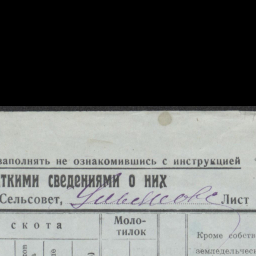 заполнять не ознакомившись с инструкцией
ткими сведениями о них
Сельсовет, Лист
скота
Моло-
тилок
Кроме собств
земледельческ